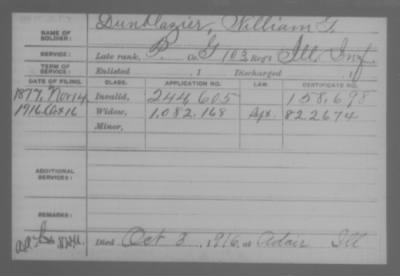 NAME OF SOLDIER: Dunblazier, William G.
SERVICE: Late rank, P. Co. G 103 Reg't Ill. Inf.
TERM OF SERVICE: Enlisted , 1 Discharged , 1
DATE OF FILING. CLASS. APPLICATION NO. LAW. CERTIFICATE NO.
1877, Nov 14 Invalid, 244,605 158,698
1916 Oct 16 Widow, 1,082,168 822674
Minor,
ADDITIONAL SERVICES:
REMARKS:
Died Oct 3, 1916, at Adair Ill